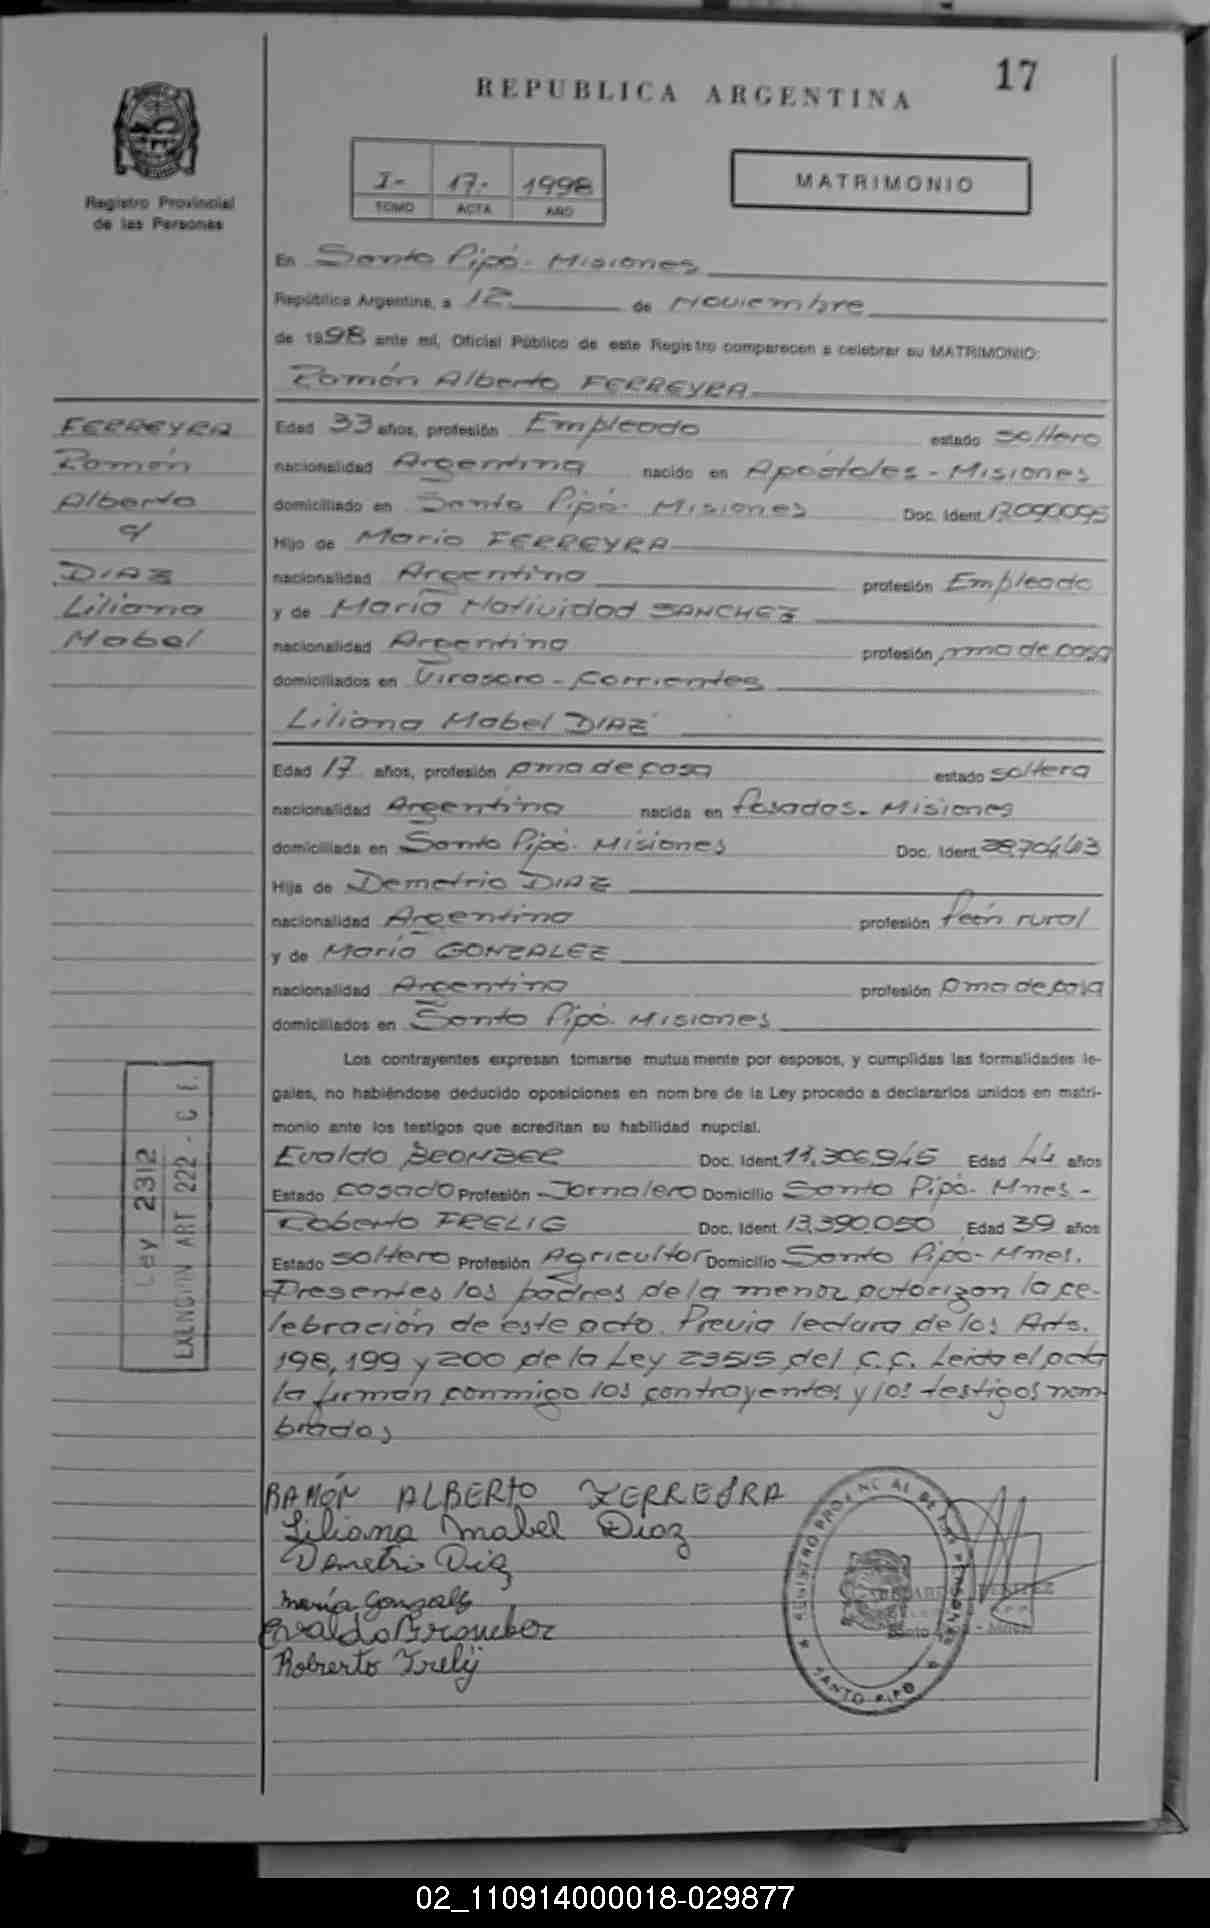 17
REPUBLICA ARGENTINA
Registro Provincial
de las Personas
I- 17- 1998
TOMO ACTA AÑO
MATRIMONIO
En Santo Pipó - Misiones
República Argentina, a 12 de Noviembre
de 1998 ante mí, Oficial Público de este Registro comparecen a celebrar su MATRIMONIO:
Ramón Alberto FERREYRA
FERREYRA
Ramón
Alberto
c/
DIAZ
Liliana
Mabel
Edad 33 años, profesión Empleado estado soltero
nacionalidad Argentina nacido en Apóstoles - Misiones
domiciliado en Santo Pipó - Misiones Doc. Ident. 17.090.095
Hijo de Mario FERREYRA
nacionalidad Argentino profesión Empleado
y de María Natividad SANCHEZ
nacionalidad Argentina profesión ama de casa
domiciliados en Virasoro - Corrientes
Liliana Mabel DIAZ
Edad 17 años, profesión ama de casa estado soltera
nacionalidad Argentina nacida en Posadas - Misiones
domiciliada en Santo Pipó - Misiones Doc. Ident.
Hija de Demetrio DIAZ
nacionalidad Argentino profesión Peón rural
y de María GONZALEZ
nacionalidad Argentina profesión ama de casa
domiciliados en Santo Pipó - Misiones
Los contrayentes expresan tomarse mutuamente por esposos, y cumplidas las formalidades le-
gales, no habiéndose deducido oposiciones en nombre de la Ley procedo a declararlos unidos en matri-
monio ante los testigos que acreditan su habilidad nupcial.
Evaldo BRONBER Doc. Ident. 11.306.945 Edad 44 años
Estado casado Profesión Jornalero Domicilio Santo Pipó - Mnes -
Roberto FRELIG Doc. Ident. 13.390.050 Edad 39 años
Estado soltero Profesión Agricultor Domicilio Santo Pipó - Mnes.
Presentes los padres de la menor autorizan la ce-
lebración de este acto. Previa lectura de los Arts.
198, 199 y 200 de la Ley 23515 del C.C. Leída el acta
la firman conmigo los contrayentes y los testigos nom-
brados
Ley 2312
EXENCION ART 222 - C F.
RAMÓN ALBERTO FERREJRA
Liliana Mabel Diaz
Demetrio Diaz
María Gonzalez
Evaldo Bronber
Roberto Frelij
REGISTRO PROVINCIAL DE LAS PERSONAS
SANTO PIPO
BENITEZ
02_110914000018-029877